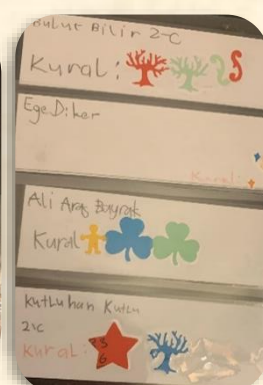 Bulut Bilir 2-C
Kural:
Ege Diker
Kural:
Ali Aras Bayrak
Kural
Kutluhan Kutlu
2-C
Kural: